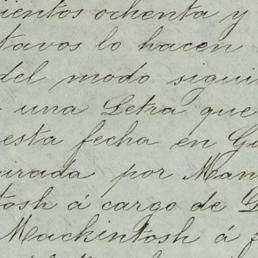 ientos ochenta y
tavos lo hacen
del modo sigui
una Letra que
esta fecha en Gu
urada por Man
tosh á cargo de
Mackintosh á f